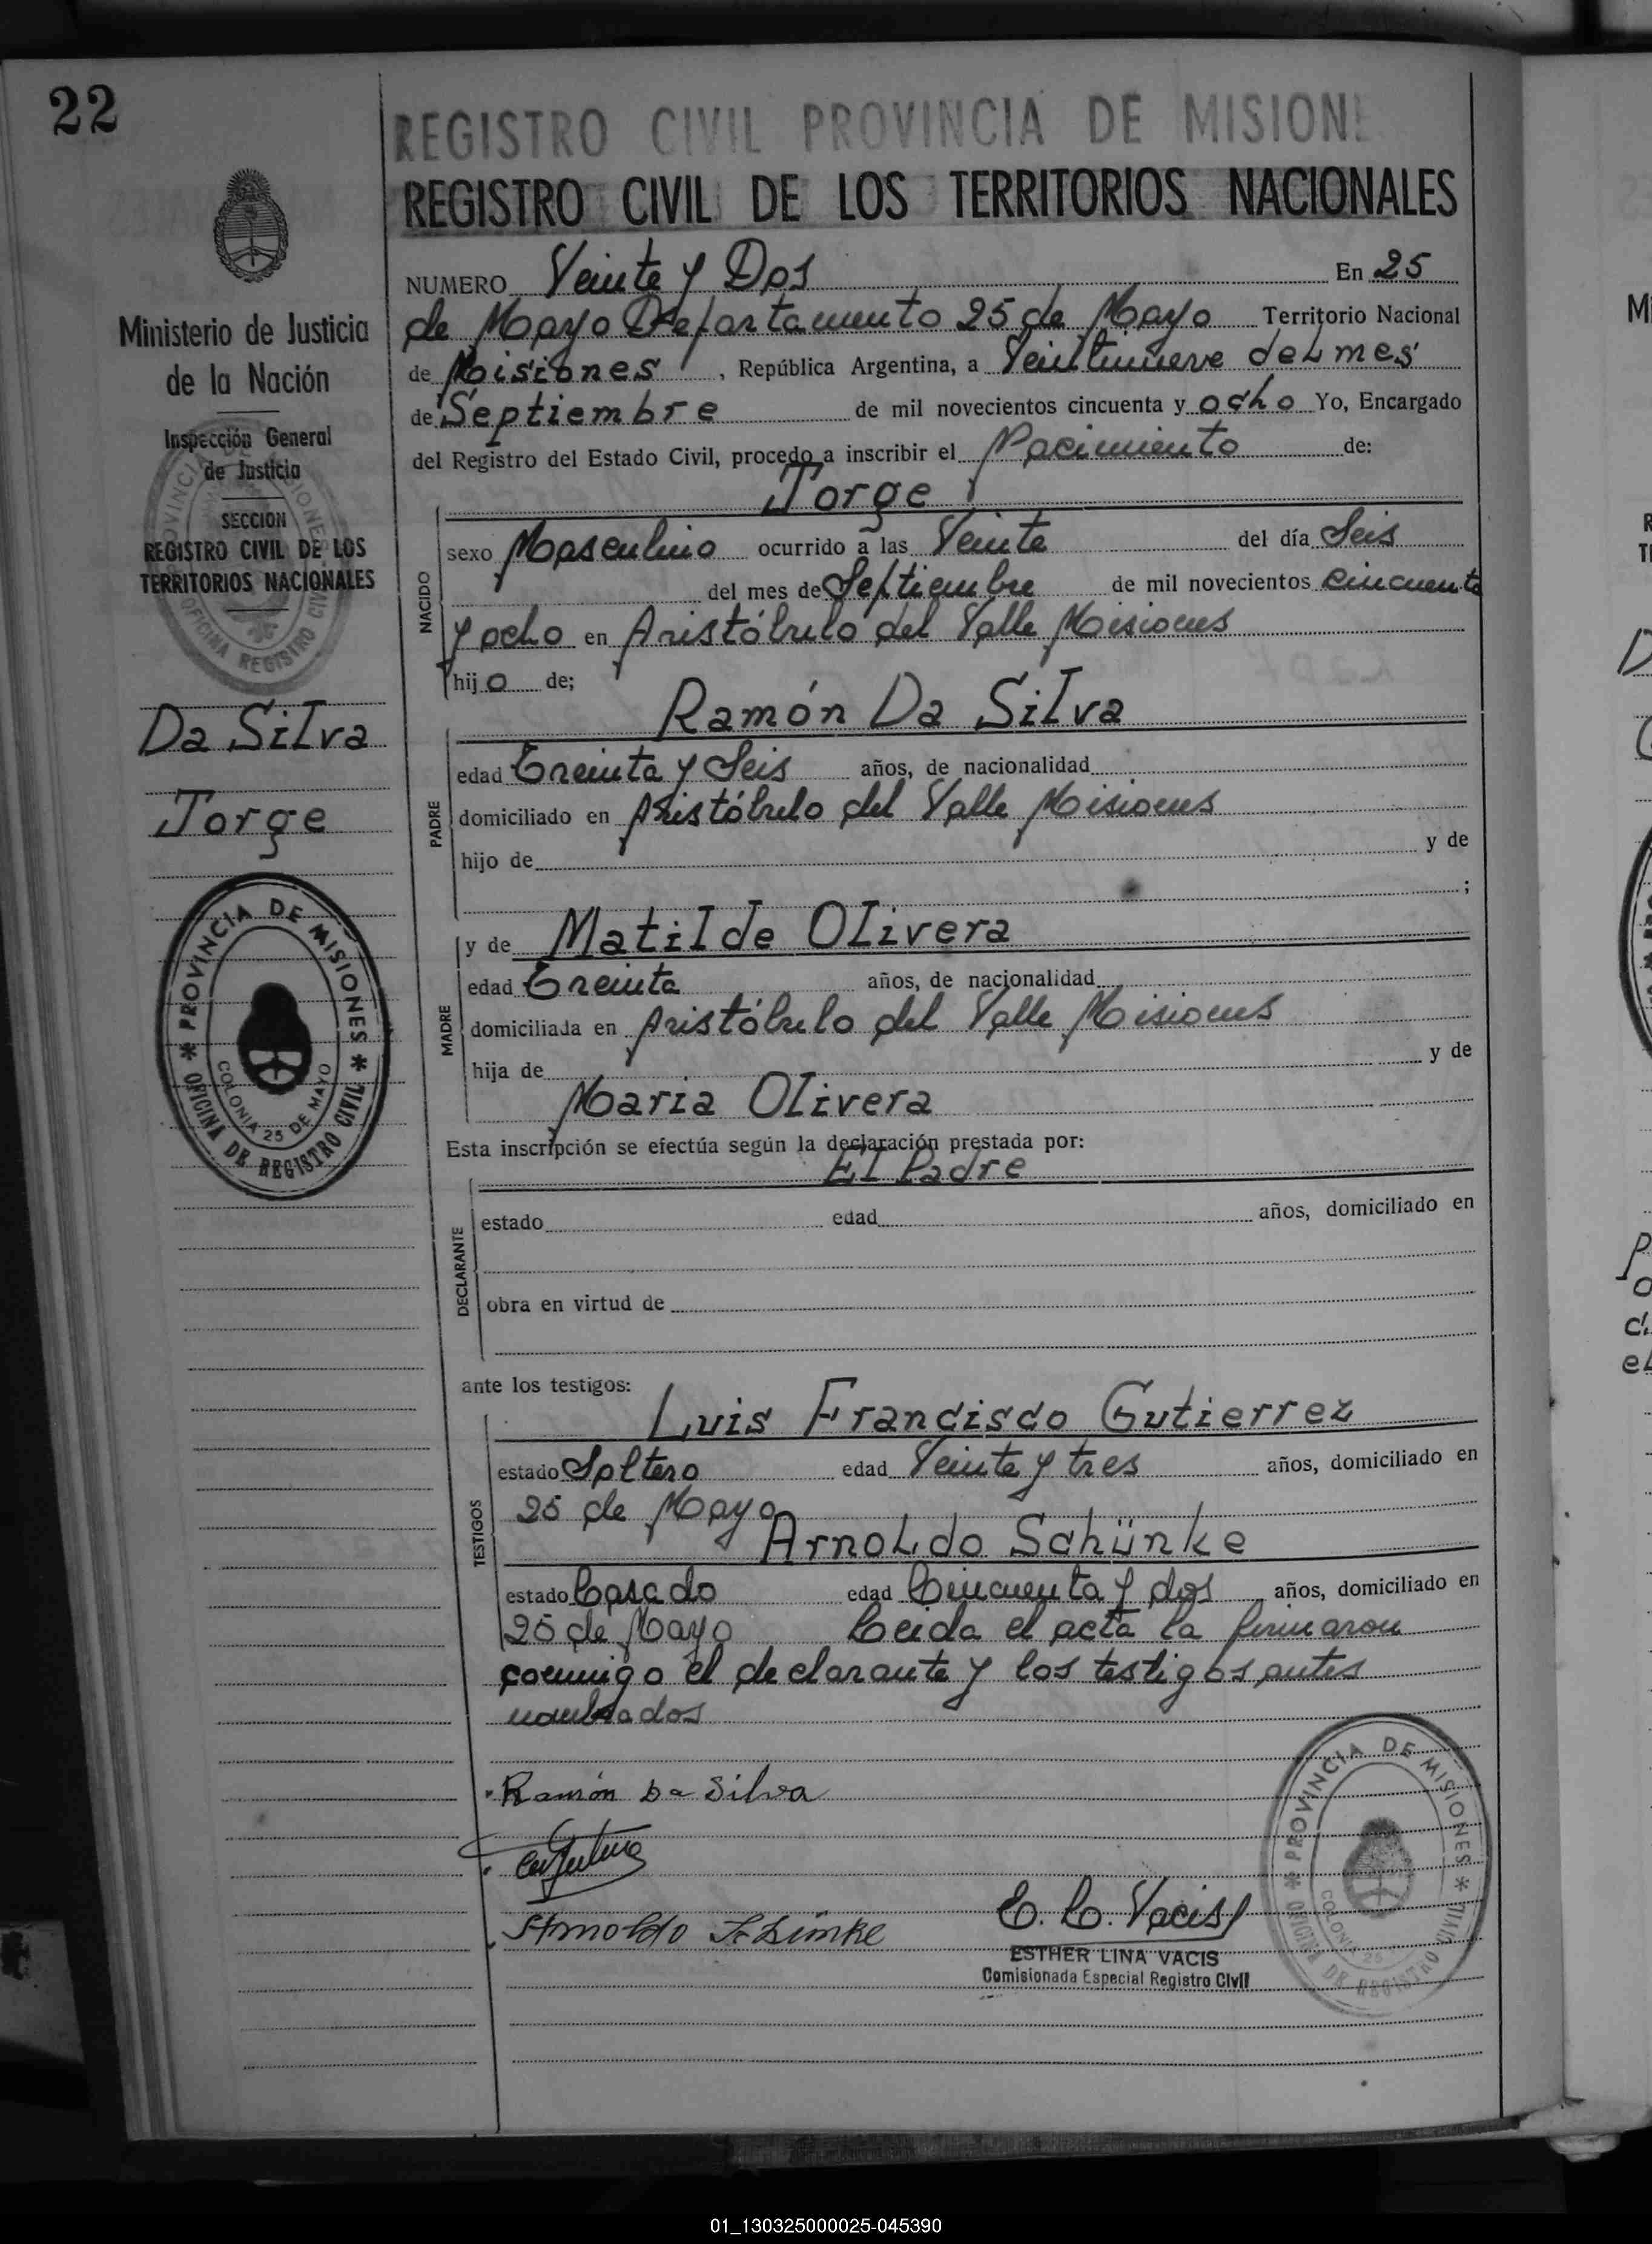 22
REGISTRO CIVIL PROVINCIA DE MISION
REGISTRO CIVIL DE LOS TERRITORIOS NACIONALES
Ministerio de Justicia
de la Nación
Inspección General
de Justicia
SECCION
REGISTRO CIVIL DE LOS
TERRITORIOS NACIONALES
Da Silva
Jorge
PROVINCIA DE MISIONES
COLONIA 25 DE MAYO
OFICINA DE REGISTRO CIVIL
NUMERO Veinte y Dos En 25
de Mayo Departamento 25 de Mayo Territorio Nacional
de Misiones, República Argentina, a Veintinueve del mes
de Septiembre de mil novecientos cincuenta y ocho Yo, Encargado
del Registro del Estado Civil, procedo a inscribir el Nacimiento de:
NACIDO
Jorge
sexo Masculino ocurrido a las Veinte del día Seis
del mes de Septiembre de mil novecientos cincuenta
y ocho en Aristóbulo del Valle Misiones
hijo de;
PADRE
Ramón Da Silva
edad Treinta y Seis años, de nacionalidad
domiciliado en Aristóbulo del Valle Misiones
hijo de y de
;
MADRE
y de Matilde Olivera
edad Treinta años, de nacionalidad
domiciliada en Aristóbulo del Valle Misiones
hija de y de
Maria Olivera
Esta inscripción se efectúa según la declaración prestada por:
DECLARANTE
El Padre
estado edad años, domiciliado en
obra en virtud de
ante los testigos:
TESTIGOS
Luis Francisco Gutierrez
estado Soltero edad Veinte y tres años, domiciliado en
25 de Mayo
Arnoldo Schünke
estado Casado edad Cincuenta y dos años, domiciliado en
25 de Mayo Leida el acta la firmaron
conmigo el declarante y los testigos antes
nombrados
Ramón Da Silva
Arnoldo Schünke
E. L. Vacis
ESTHER LINA VACIS
Comisionada Especial Registro Civil
PROVINCIA DE MISIONES
COLONIA 25
OFICINA DE REGISTRO CIVIL
01_130325000025-045390